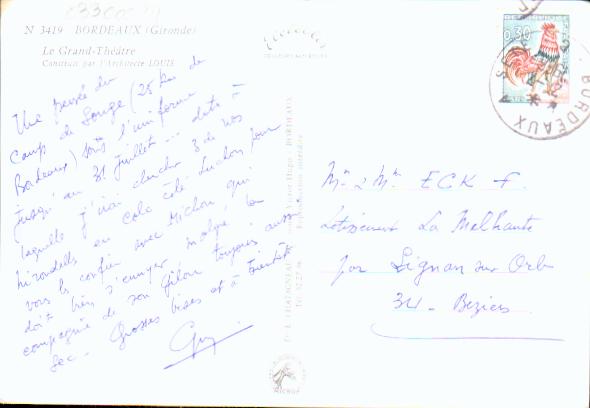 N 3419 BORDEAUX (Gironde)
Le Grand-Théâtre
Construit par l'Architecte LOUIS
Une pensée du
Camp de Souge (25 km de
Bordeaux) sous l'uniforme
jusqu'au 31 juillet... date à
laquelle j'irai chercher 3 de nos
hirondelles en colo côté Luchon pour
vous les confier avec Michou qui
doit bien s'ennuyer malgré la
compagnie de son Gilou toujours aussi
sec - Grosses bises et à bientôt
Guy
0,30
BORDEAUX
Mr & Mme ECK F.
Lotissement La Malhaute
par Lignan sur Orb
34 - Beziers